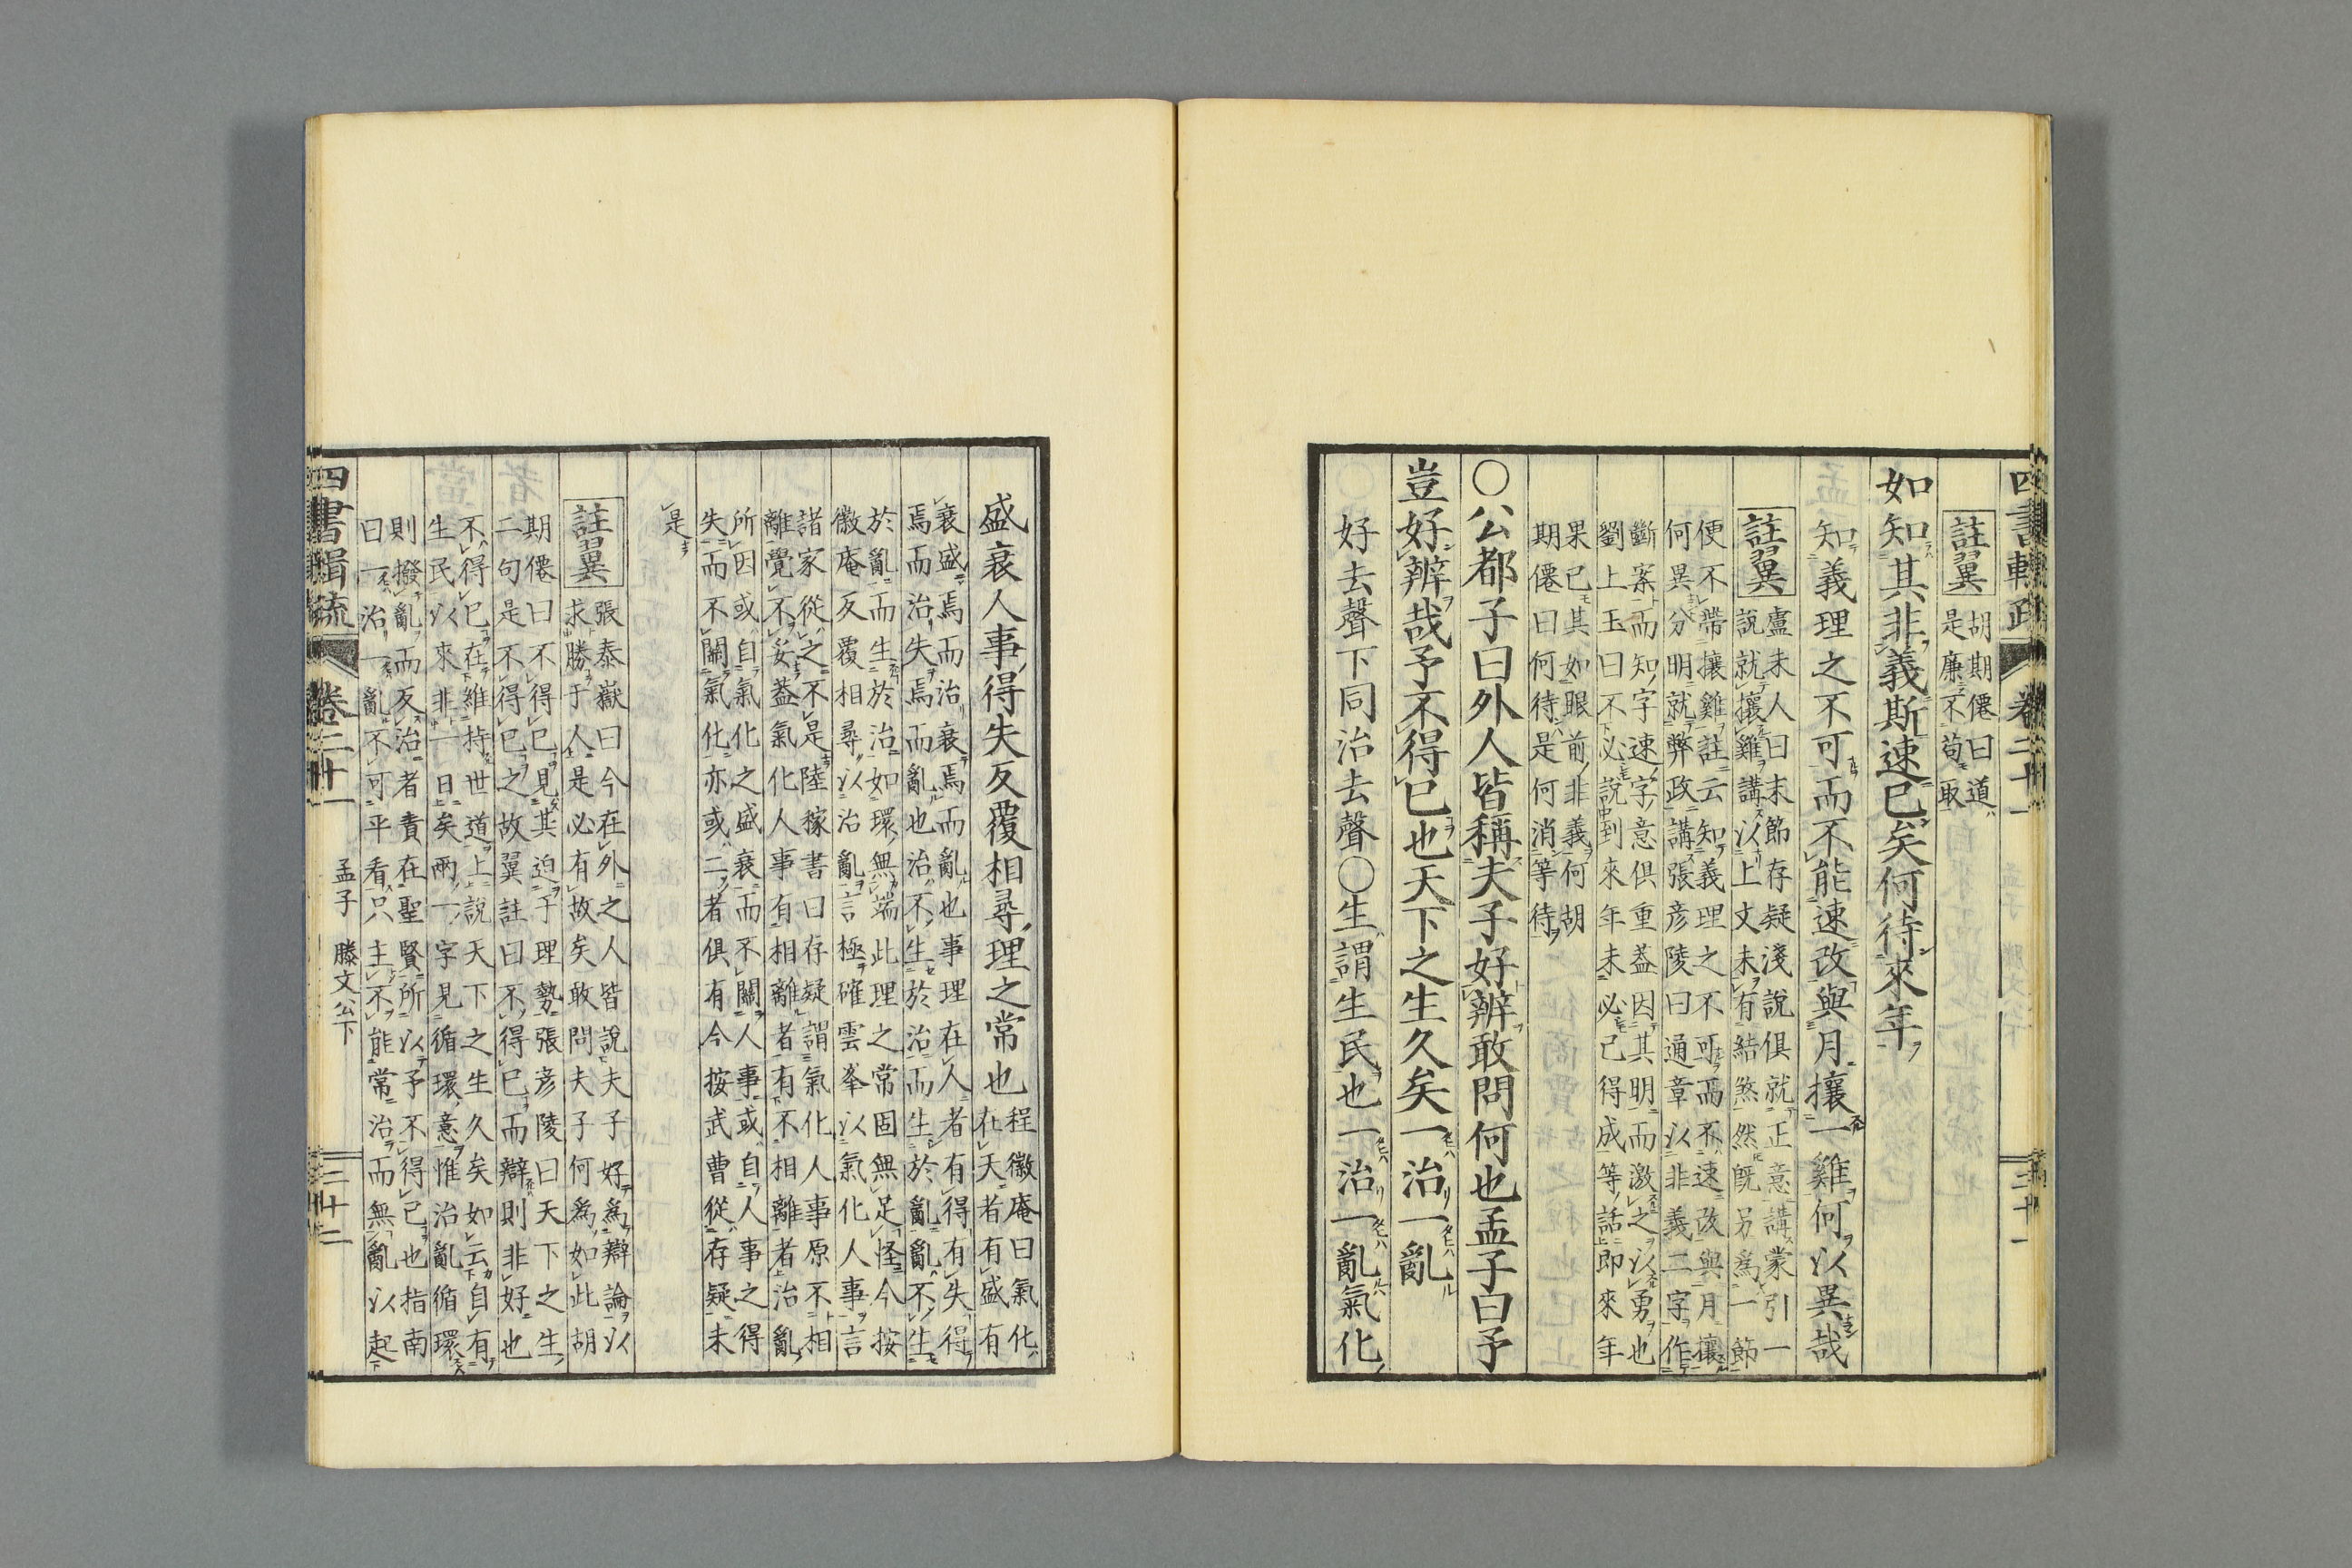 四書輯疏 卷二十一 三十一
註翼
胡期僊曰道
是廉不苟取
如知其非義斯速已矣何待來年
知義理之不可而不能速改與月攘一雞何以異哉
註翼
盧未人曰末節存疑淺說俱就正意講蒙引一
說就攘雞講以上文未有結煞然旣另爲一節
便不帶攘雞註云知義理之不可而不速改與月攘
何異分明就弊政講張彦陵曰通章以非義二字作
斷案而知字速字意俱重蓋因其明而激之以勇也
劉上玉曰不必說到來年未必已得成等話即來年
果已其如眼前非義何胡
期僊曰何待是何消等待
○公都子曰外人皆稱夫子好辨敢問何也孟子曰予
豈好辨哉予不得已也天下之生久矣一治一亂
好去聲下同治去聲○生謂生民也一治一亂氣化
盛衰人事得失反覆相尋理之常也
程徽庵曰氣化
在天者有盛有
衰盛焉而治衰焉而亂也事理在人者有得有失得
焉而治失焉而亂也治不生於治而生於亂亂不生
於亂而生於治如環無端此理之常固無足怪今按
徽庵反覆相尋以治亂言極確雲峯以氣化人事言
諸家從之不是陸稼書曰存疑謂氣化人事原不相
離覺不妥蓋氣化人事有相離者有不相離者治亂
所因或自氣化之盛衰而不關人事或自人事之得
失而不關氣化亦或二者俱有今按武曹從存疑未
是
註翼
張泰嶽曰今在外之人皆說夫子好爲辯論以
求勝于人是必有故矣敢問夫子何爲如此胡
期僊曰不得已見其迫于理勢張彦陵曰天下之生
二句是不得已之故翼註曰不得已而辯則非好也
不得已在維持世道上說天下之生久矣如云自有
生民以來非一日矣兩一字見循環意惟治亂循環
則撥亂而反治者責在聖賢所以予不得已也指南
曰一治一亂不可平看只主不能常治而無亂以起
四書輯疏 卷二十一 孟子 滕文公下 三十二